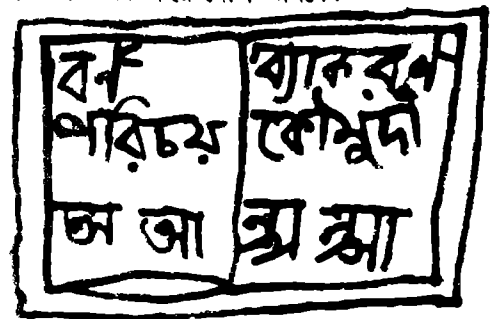 বর্ণ
পরিচয়
অ আ
ব্যাকরণ
কৌমুদী